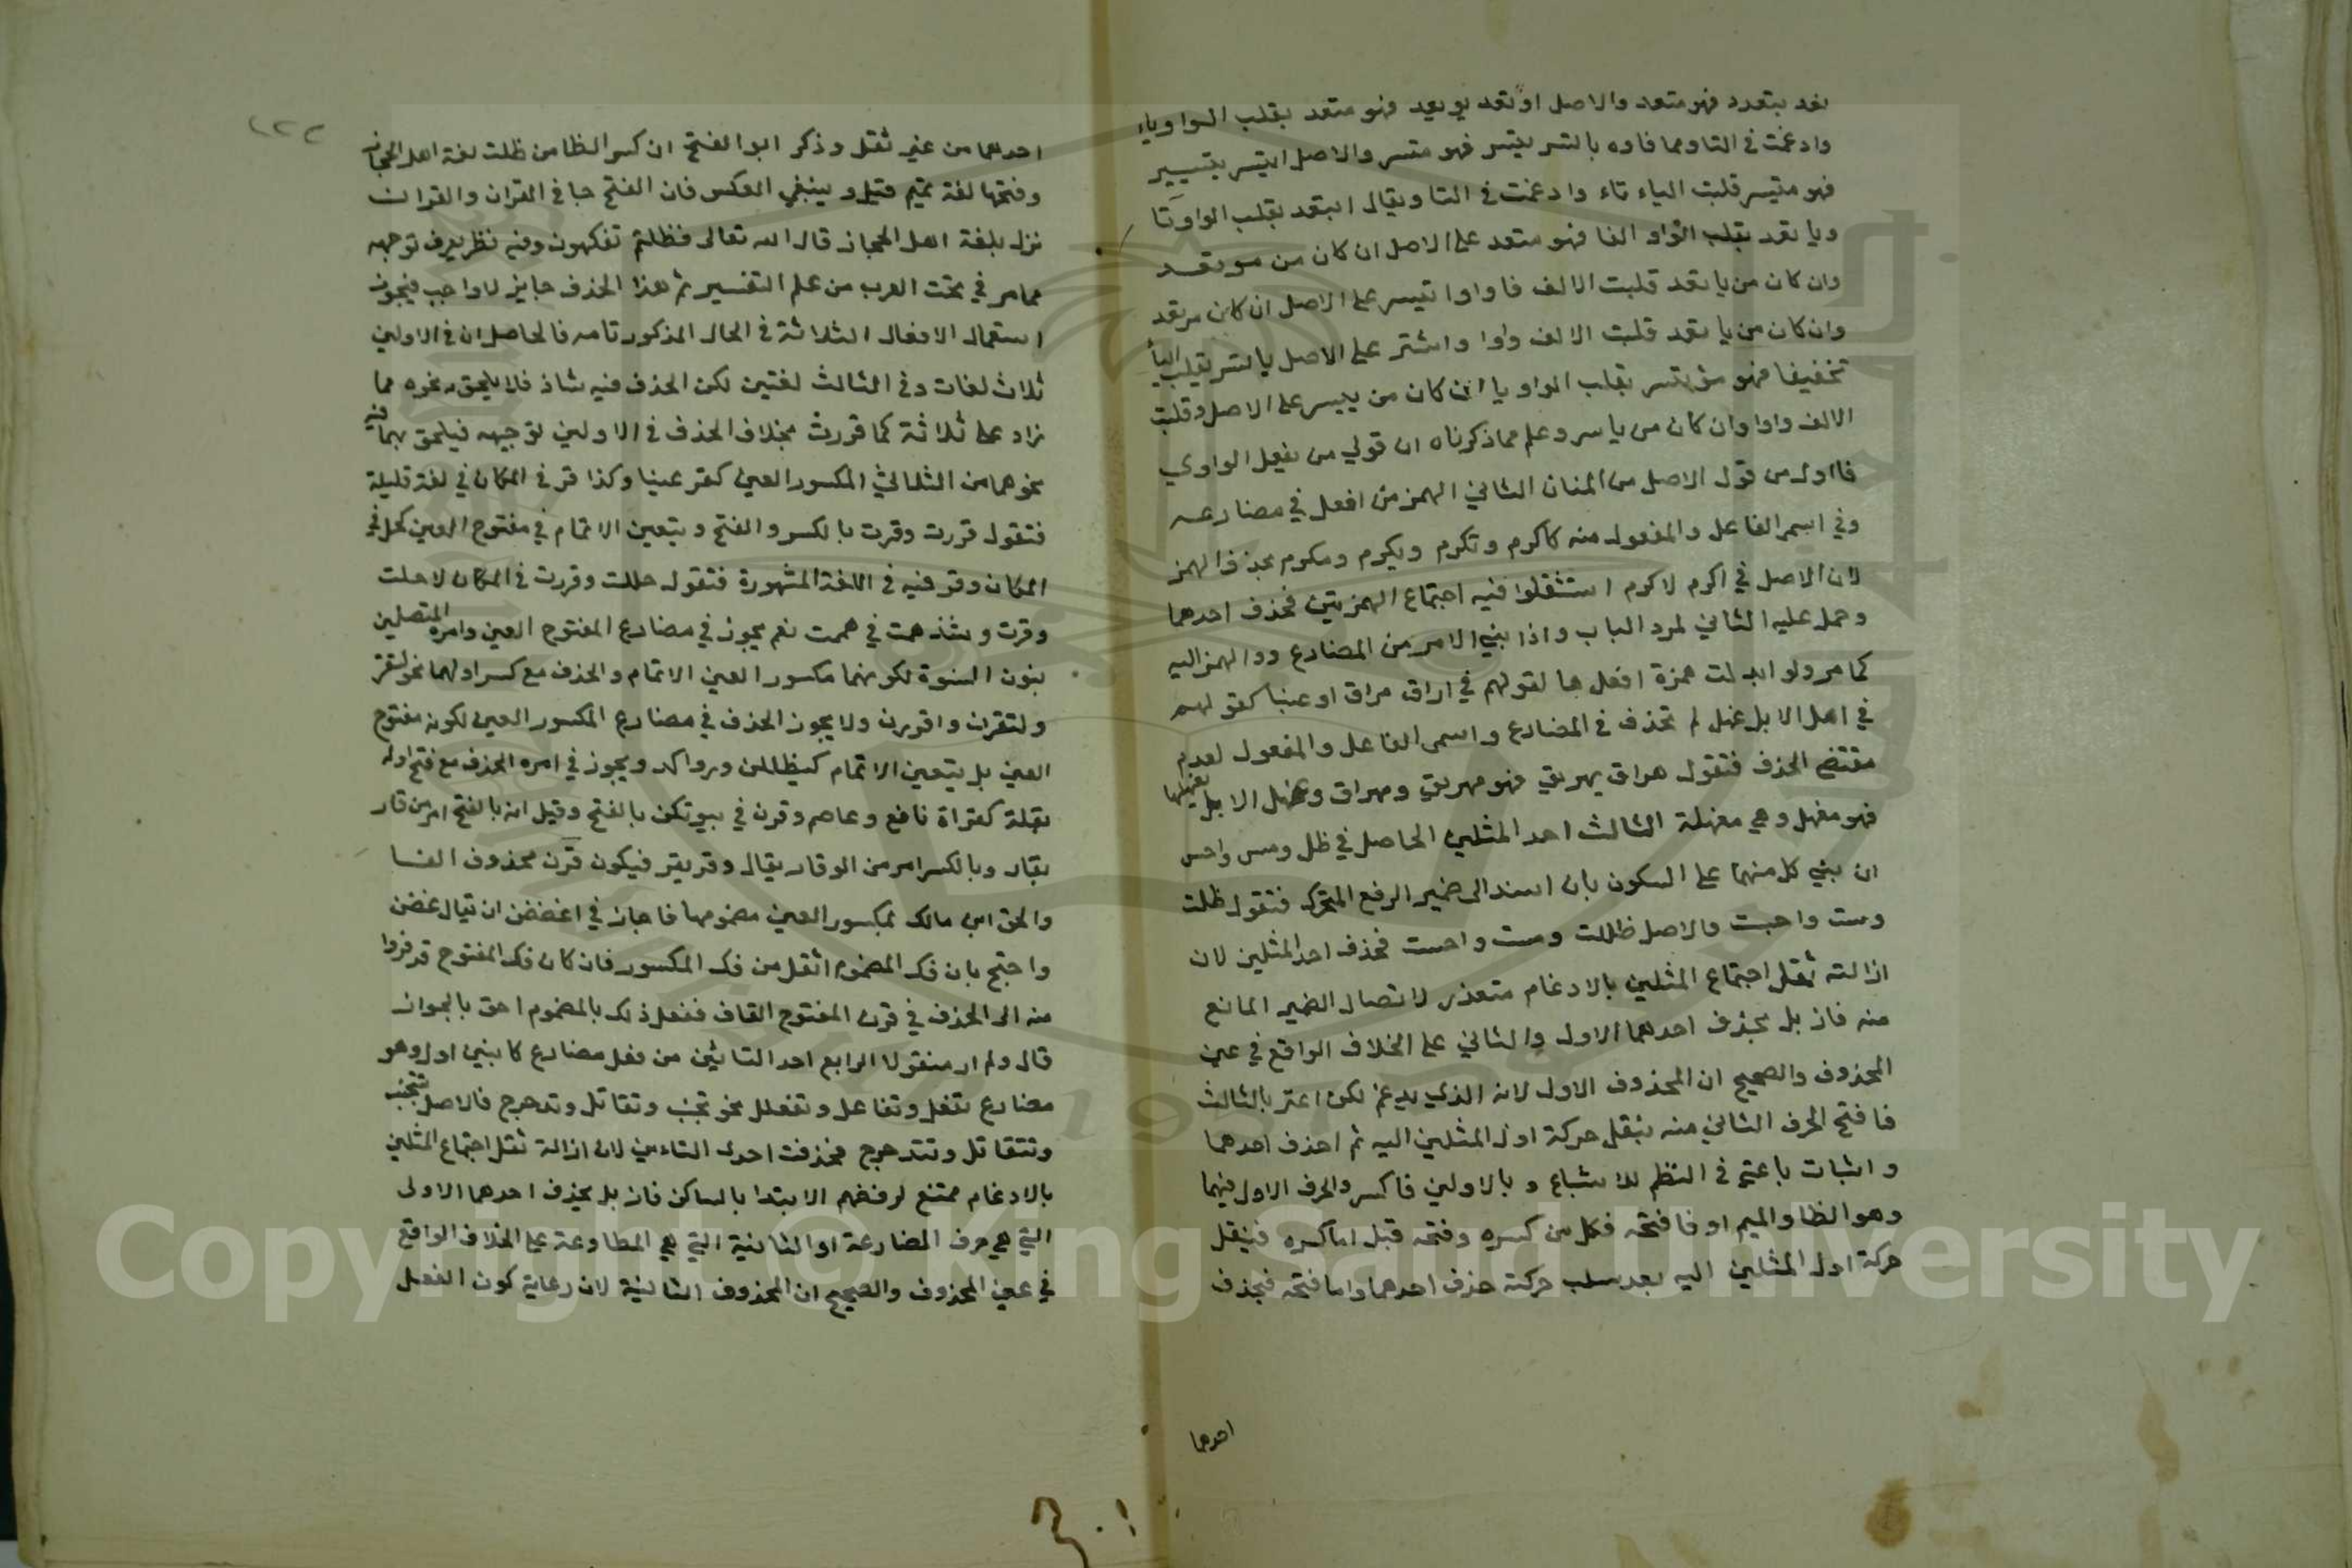 وادغمت في التا ومما فاوه يا اتسر يتسر فهو متسر والاصل ايتسر يتيسر
فهو متيسر قلبت الياء تاء وادغمت في التا ويقال ايتعد بقلب الواو يا
ويا تعد بقلب الواو الفا فهو متعد على الاصل ان كان من موتعد
وان كان من يا تعد قلبت الالف فا واوا تيسر على الاصل ان كان
وان كان من يا تعد قلبت الالف واوا على الاصل يا تسر بقلب اليا
تخفيفا فهو موتسر بقلب الواو يا ان كان من ييسر على الاصل وقلبت
الالف واوا وان كان من ياسر وعلم مما ذكرناه ان قولي من الواوي
فا اولى من قول الاصل من المثال الثاني الهمز من افعل في مضارعه
وفي اسم الفاعل والمفعول منه كاكرم وتكرم ويكرم ومكرم بحذف الهمز
لان الاصل في اكرم لاكرم استثقلوا فيه اجتماع الهمزتين فحذف احدهما
وحمل عليه الثاني لمرد الباب واذا بني الامر من المضارع ردا لهمز اليه
كما مر ولو ابدلت همزة افعل ها لقولهم في اراق هراق او عينا كقولهم
في اهل الابل عنهل لم تحذف في المضارع واسمي الفاعل والمفعول لعدم
مقتضى الحذف فتقول هراق يهريق فهو مهريق ومهراق وعنهل الابل يعنهلها
فهو معنهل وهي معنهلة الثالث احد المثلين الحاصل في ظل ومس واحس
ان بني كل منهما على السكون بان اسند الى ضمير الرفع المتحرك فتقول ظلت
ومست واحست والاصل ظللت ومسست واحسست فحذف احد المثلين لان
ازالته ثقل اجتماع المثلين بالادغام متعذر لاتصال الضمير المانع
منه فازيل بحذف احدهما الاول والثاني على الخلاف الواقع في عين
المحذوف والصحيح ان المحذوف الاول لانه الذي يدغم لكن اعتر بالثالث
فافتح الحرف الثاني منه بنقل حركة اول المثلين اليه ثم احذف احدهما
واثبات يا عتر في النظم للاشباع وبالاولين فاكسر والحرف الاول فيهما
وهو الظا والميم او فا فتحه فكل من كسره وفتحه قبل اما كسره فينقل
حركة اول المثلين اليه بعد سلب حركته حذف احدهما واما فتحه فبحذف
احدهما
احدهما من غير ثقل وذكر ابو الفتح ان كسر الظا من ظلت لغة اهل الحجاز
وفتحها لغة تميم قيل وينبغي العكس فان الفتح جا في القران والقران
نزل بلغة اهل الحجاز قال الله تعالى فظلتم تفكهون وفيه نظر يعرف توجيهه
مما مر في تحت العرب من علم التفسير ثم هذا الحذف جايز لا واجب فيجوز
استعمال الافعال الثلاثة في الحال المذكور تامه فالحاصل ان في الاولين
ثلاث لغات وفي الثالث لغتين لكن الحذف فيه شاذ فلا يلحق به نحوه مما
زاد على ثلاثة كما قررت بخلاف الحذف في الاولين لتوجيهه فيلحق بهما فيه
نحوهما من الثلاثي المكسور العين كقر عينا وكذا قر في المكان في لغة قليلة
فتقول قررت وقرت بالكسر والفتح ويتعين الاتمام في مفتوح العين كحل في
المكان وقر فيه في اللغة المشهورة فتقول حللت وقررت في المكان لا حلت
وقرت وشذ همت في هممت نعم يجوز في مضارع المفتوح العين وامره المتصلين
بنون النسوة لكونهما مكسور العين الاتمام والحذف مع كسر اولهما نحو لتقرن
ولتقررن واقررن ولا يجوز الحذف في مضارع المكسور العين لكونه مفتوح
العين بل يتعين الاتمام كيظللن ورواكد ويجوز في امره الحذف مع فتح اوله
بقلة كقراة نافع وعاصم وقرن في بيوتكن بالفتح وقيل انه بالفتح امر من قار
يقار وبالكسر امر من الوقار يقال وقر يقر فيكون قرن محذوف الفا
والحق ابن مالك بمكسور العين مضمومها فاجاز في اغضضن ان يقال غضن
واحتج بان فك المضموم اثقل من فك المكسور فان كان فك المفتوح قد فروا
منه الى الحذف في قرن المفتوح القاف ففعل ذلك بالمضموم احق بالجواز
قال ولم ار منقولا الرابع احد التائين من فعل مضارع كابنين اول وهو
مضارع تفعل وتفاعل وتفعلل نحو تجنب وتقاتل وتدحرج فالاصل تتجنب
وتتقاتل وتتدحرج فحذفت احدى التاءين لان ازالة ثقل اجتماع المثلين
بالادغام ممتنع لرفضهم الابتدا بالساكن فازيل بحذف احدهما الاولى
التي هي حرف المضارعة او الثانية التي هي المطاوعة على الخلاف الواقع
في عين المحذوف والصحيح ان المحذوف الثانية لان رعاية كون الفعل
Copyright © King Saud University